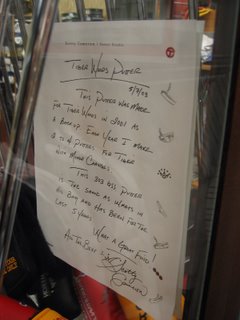 Scotty Cameron | Putter Studio
Tiger Woods Putter
5/9/03
This Putter was made
for Tiger Woods in 2001 as
a backup. Each year I make
2 to 4 putters for Tiger
with minor changes
This 303 GSS Putter
is the same as whats in
his bag and has been for the
last 5 years
What a great find!
All the best
Scotty
Cameron